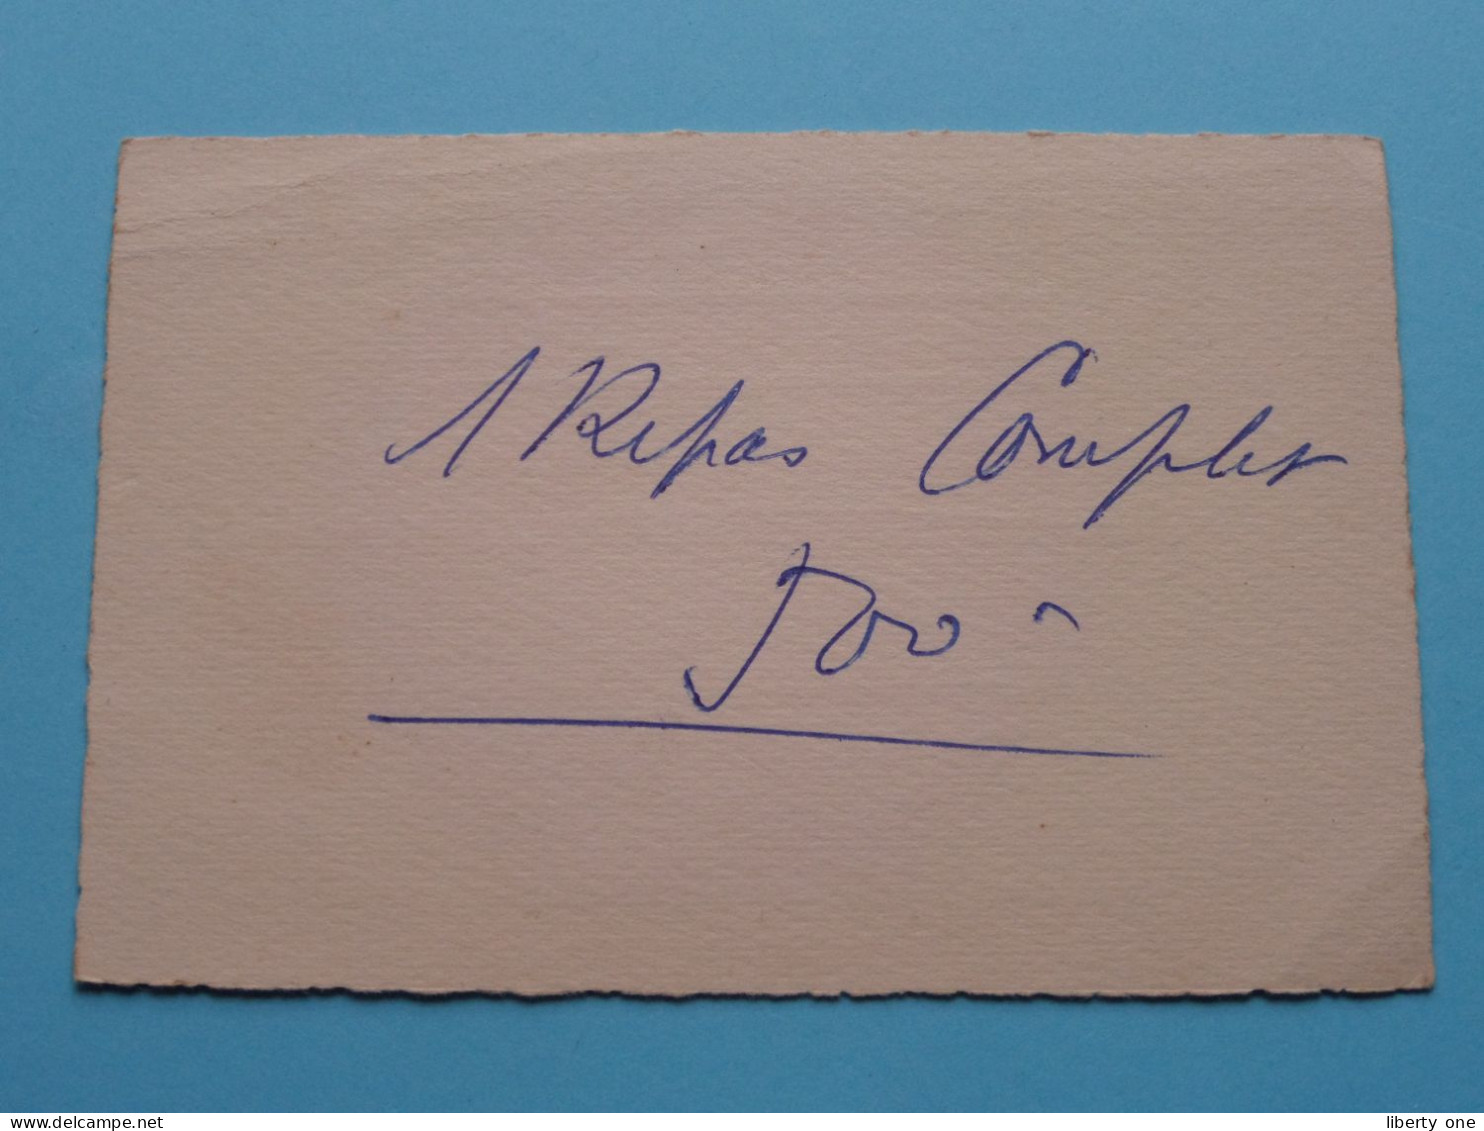 1 Repas Complet
500 -
www.delcampe.net
liberty one